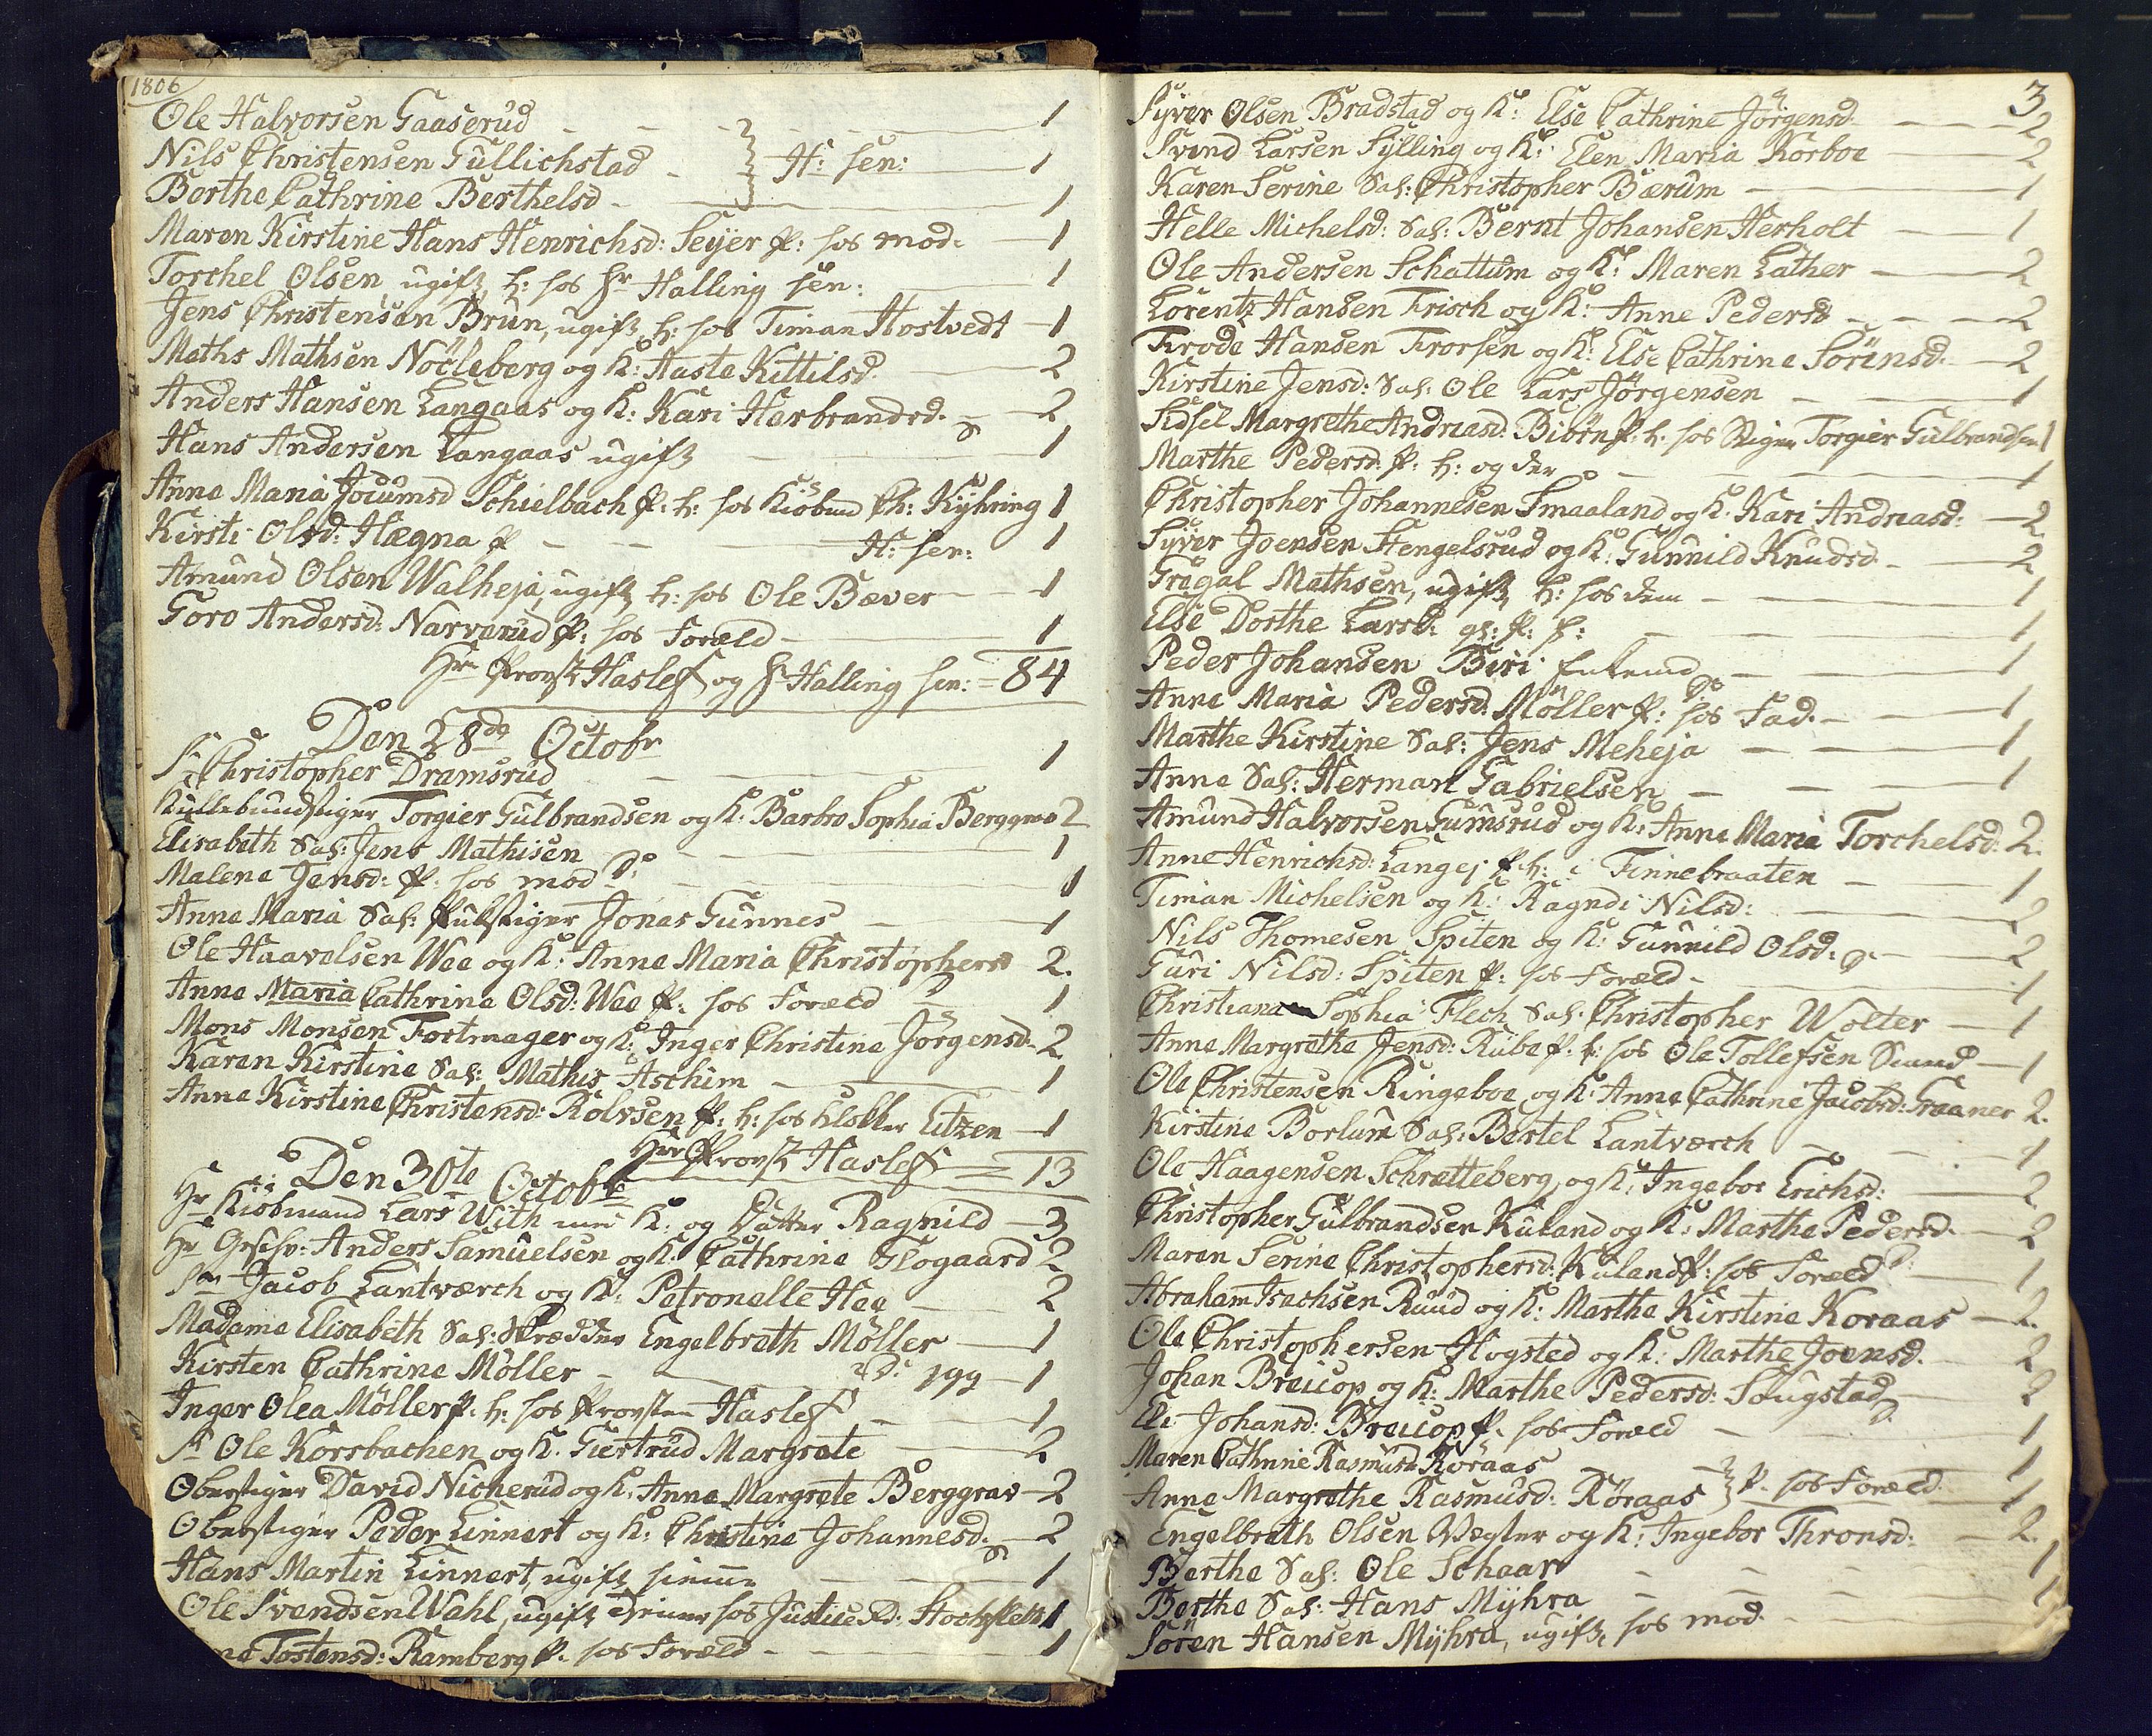 1806
Ole Halvorsen Gaaserud - - - 1
Nils Christensen Gullichstad - H: sen: 1
Berthe Cathrine Berthelsd - 1
Maren Kirstine Hans Henrichsd: Seyer p: hos mod: 1
Torchel Olsen ugift h: hos Hr Halling sen: 1
Jens Christensen Brun, ugift h: hos Timan Hostvedt 1
Maths Mathsen Nöcleberg og K: Aaste Kittilsd. 2
Anders Hansen Langaas og K: Kari Harbrandsd. 2
Hans Andersen Langaas ugift 1
Anne Maria Jocumsd Schielbach p: h: hos Kiöbmd Ch: Kyhring 1
Kirsti Olsd: Hægna p H: sen: 1
Amund Olsen Walheja, ugift h: hos Ole Bæver 1
Goro Andersd: Narverud p: hos Foræld 1
Hrr Provst Haslef og Hr Halling sen: = 84
Den 28de Octobr
Sr Christopher Dramsrud 1
Torgier Gulbrandsen og K: Barbro Sophia Berggrav 2
Elisabeth Sal: Jens Mathisen 1
Malene Jensd: p: hos mod 1
Anne Maria Sal: Jonas Gunnes 1
Ole Haavelsen Wee og K: Anne Maria Christophersd 2.
Anne Maria Cathrine Olsd: Wee p: hos Foræld 1
Mons Monsen Fortmager og K: Inger Christine Jörgensd. 2
Karen Kirstine Sal: Mathis Aschim 1
Anne Kirstine Christensd: Rolvsen p: h: hos Klokker Eitzen 1
Hrr Provst Haslef = 13
Den 30te Octobr
Hr Kiöbmand Lars With med K: og Datter Ragnild 3
Hr Anders Samuelsen og K: Cathrine Flogaard 2
Sr Jacob Lantværch og K: Petronelle Hee 2
Madame Elisabeth Sal: Engelbreth Möller 1
Kirsten Cathrine Möller - 199 1
Inger Olea Möller p: h: hos Provsten Haslef 1
Sr Ole Korsbachen og K. Giertrud Margrete 2
Oberstiger David Nicherud og K: Anne Margrete Berggrav 2
Oberstiger Peder Linnert og K: Christine Johannesd. 2
Hans Martin Linnert, ugift 1
Ole Svendsen Wahl, ugift hos Justice Rd: 1
Tostensd: Ramberg p. hos Foræld 1
3
Syver Olsen Bradstad og K: Else Cathrine Jörgensd. 2
Svend Larsen Sylling og K: Elen Maria Korboe 2
Karen Serine Sal: Christopher Bærum 1
Helle Michelsd: Sal: Bernt Johansen Herholt 1
Ole Andersen Schattum og K: Maren Lather 2
Lorentz Hansen Frisch og K: Anne Pedersd 2
Frode Hansen Frorsen og K: Else Cathrine Sörensd. 2
Kirstine Jensd: Sal: Ole Lars Jörgensen 1
Sidsel Margrethe Andreasd: Biörn p: h: hos Stiger Torgier Gulbrandsen 1
Marthe Pedersd. p. h: og der 1
Christopher Johannesen Smaaland og K. Kari Andreasd: 2
Syver Joensen Hengelsrud og K: Gunnild Knudsd. 2
Gregal Mathsen, ugift h: hos dem 1
Else Dorthe Larsd: p: h: 1
Peder Johansen Biri Enkemd 1
Anne Maria Pedersd. Möller p: hos Fad. 1
Marthe Kirstine Sal: Jens Meheja 1
Anne Sal: Herman Gabrielsen 1
Amund Halvorsen Gumsrud og K: Anne Maria Torchelsd: 2.
Anne Henrichsd: Langej p. h: i Finnebraaten 1
Timan Michelsen og K: Ragndi Nilsd: 2
Nils Thomesen Spiten og K: Gunnild Olsd: 2
Guri Nilsd: Spiten p: hos Foræld 1
Christiana Sophia Flech Sal: Christopher Wolter 1
Anne Margrethe Jensd: Rube p: h: hos Ole Tollefsen 1
Ole Christensen Ringeboe og K: Anne Cathrine Jacobsd: Graaner 2.
Kirstine Borlum Sal: Bertel Lantværch 1
Ole Haagensen Schretteberg og K: Ingebor Erichsd: 2
Christopher Gulbrandsen Kuland og K: Marthe Pedersd. 2
Maren Serine Christophersd: Kuland p: hos Foræld 1
Abraham Isachsen Ruud og K: Marthe Kirstine Koraas 2.
Ole Christophersen Hogsted og K: Marthe Joensd. 2
Johan Breicop og K: Marthe Pedersd: Sougstad 2
Eli Johansd: Breicop p. hos Foræld 1
Maren Cathrine Rasmusd: Röraas 1
Anne Margrethe Rasmusd: Röraas p. hos Foræld 1
Engelbreth Olsen Vægter og K: Ingebor Thronsd: 2.
Berthe Sal: Ole Schaar 1
Berthe Sal: Hans Myhra 1
Sören Hansen Myhra, ugift, hos mod.